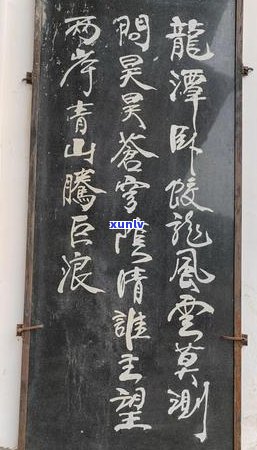 龍潭卧蛟龍風雲莫測
問昊昊蒼穹陰晴誰主望
两岸青山騰巨浪
xunlv